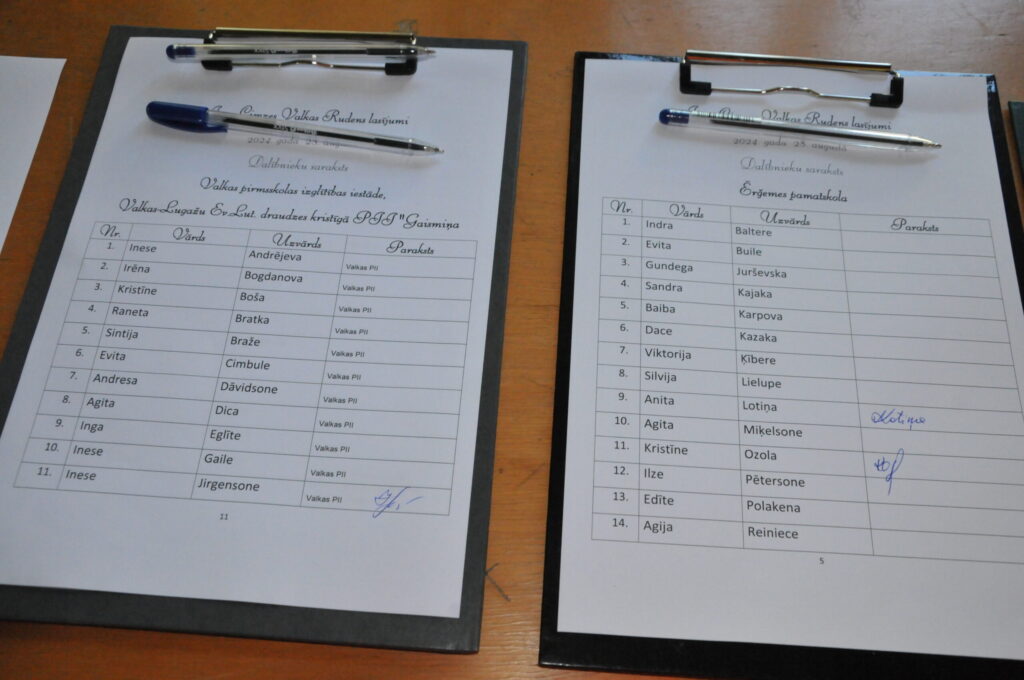 Valkas Rudens lasījumi
2024. gada 23. augustā
Dalībnieku saraksts
Valkas pirmsskolas izglītības iestāde,
Valkas-Lugažu Ev.Lut. draudzes kristīgā PII "Gaismiņa
Nr. Vārds Uzvārds Paraksts
1. Inese Andrējeva Valkas PII
2. Irēna Bogdanova Valkas PII
3. Kristīne Boša Valkas PII
4. Raneta Bratka Valkas PII
5. Sintija Braže Valkas PII
6. Evita Cimbule Valkas PII
7. Andresa Dāvidsone Valkas PII
8. Agita Dica Valkas PII
9. Inga Eglīte Valkas PII
10. Inese Gaile Valkas PII
11. Inese Jirgensone Valkas PII
11
Valkas Rudens lasījumi
2024. gada 23. augustā
Dalībnieku saraksts
Ērģemes pamatskola
Nr. Vārds Uzvārds Paraksts
1. Indra Baltere
2. Evita Buile
3. Gundega Jurševska
4. Sandra Kajaka
5. Baiba Karpova
6. Dace Kazaka
7. Viktorija Ķibere
8. Silvija Lielupe
9. Anita Lotiņa
10. Agita Miķelsone
11. Kristīne Ozola
12. Ilze Pētersone
13. Edīte Polakena
14. Agija Reiniece
5